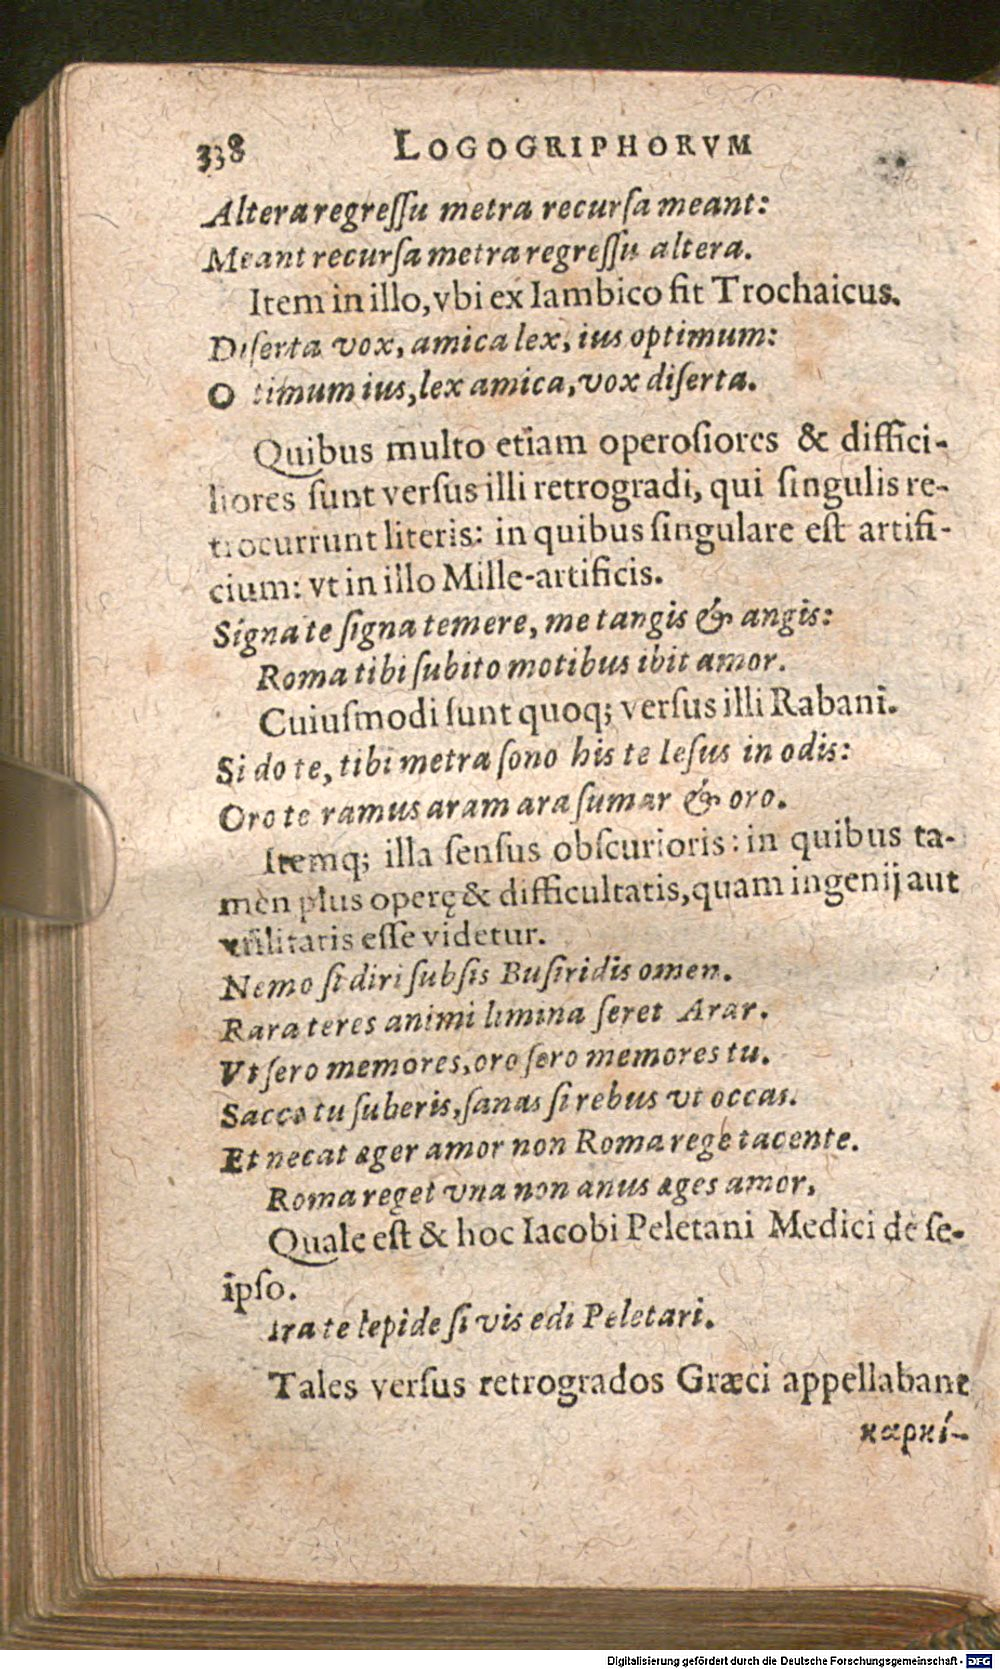 338 LOGOGRIPHORVM
Altera regreſſu metra recurſa meant:
Meant recurſa metra regreſſu altera.
Item in illo, vbi ex Iambico fit Trochaicus.
Diſerta vox, amica lex, ius optimum:
O timum ius, lex amica, vox diſerta.
Quibus multo etiam operoſiores & diffici-
liores ſunt verſus illi retrogradi, qui ſingulis re-
trocurrunt literis: in quibus ſingulare eſt artifi-
cium: vt in illo Mille-artificis.
Signa te ſigna temere, me tangis & angis:
Roma tibi ſubito motibus ibit amor.
Cuiuſmodi ſunt quoq; verſus illi Rabani.
Si do te, tibi metra ſono his te Ieſus in odis:
Oro te ramus aram ara ſumar & oro.
Itemq; illa ſenſus obſcurioris: in quibus ta-
mèn plus operę & difficultatis, quam ingenij aut
vtilitatis eſſe videtur.
Nemo ſi diri ſubſis Buſiridis omen.
Rara teres animi limina ſeret Arar.
Vt ſero memores, oro ſero memores tu.
Sacco tu ſuberis, ſanas ſi rebus vt occas.
Et necat æger amor non Roma rege tacente.
Roma reget vna non anus æges amor,
Quale eſt & hoc Iacobi Peletani Medici de ſe-
ipſo.
Ira te lepide ſi vis edi Peletari.
Tales verſus retrogrados Græci appellabant
καρκί-
Digitalisierung gefördert durch die Deutsche Forschungsgemeinschaft - DFG